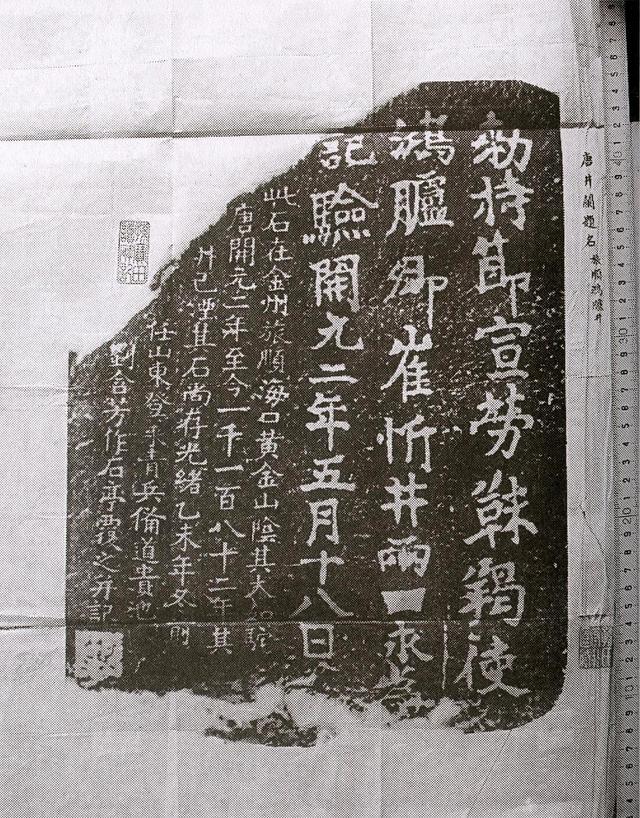 唐井闌題名 旅順鴻臚井
勅持節宣勞靺羯使
鴻臚卿崔忻井兩口永爲
記驗開元二年五月十八日
此石在金州旅順海口黃金山陰其大如駝
唐開元二年至今一千一百八十二年其
井已湮其石尚存光緒乙未年冬前
任山東登萊青兵備道貴池
劉含芳作石亭覆之并記